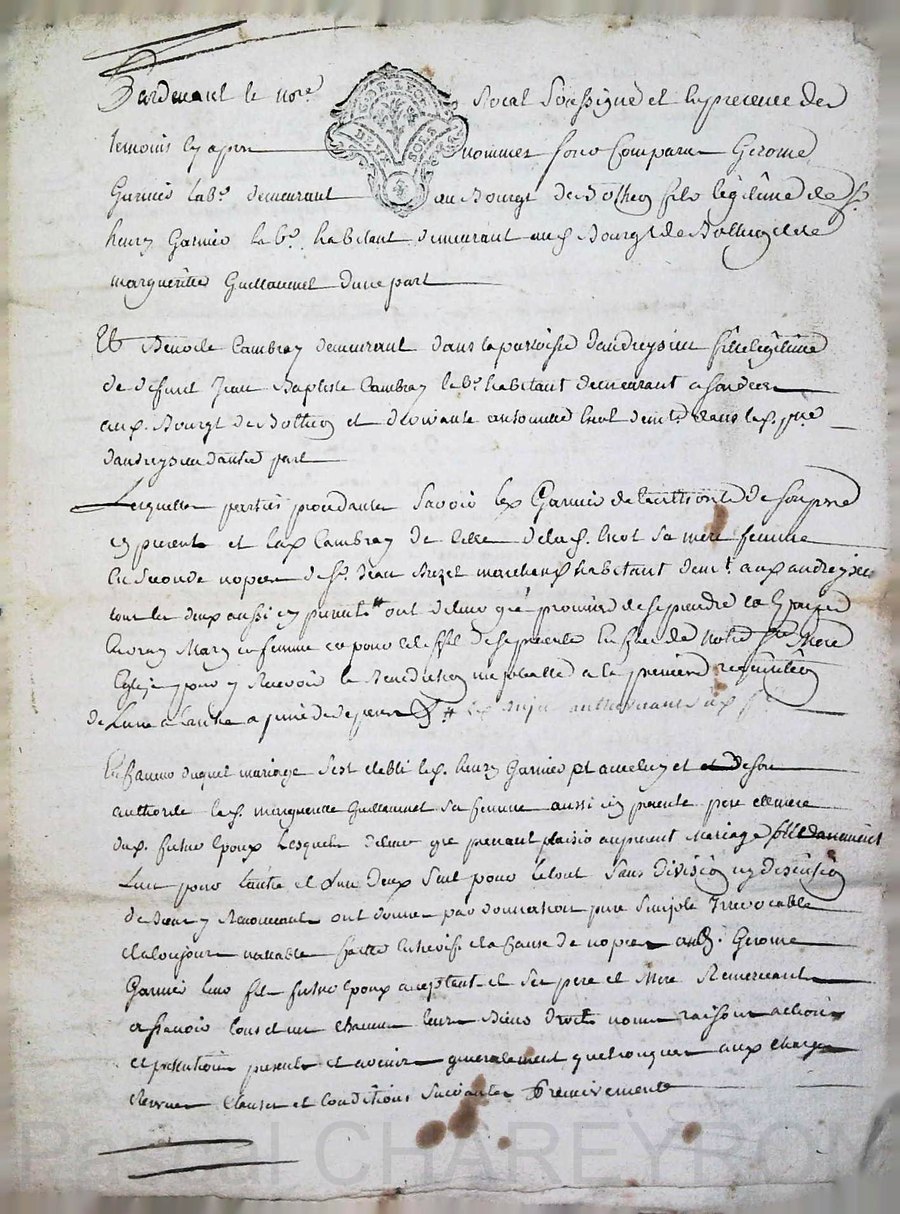 Pardevant le nore Royal soussigné et en presence des
G. DE LYON
DEUX SOLS
temoins cy apres nommes sont comparus Gerome
Garnier labr. demeurant au Bourgt de Bothéon fils légitime de Sr.
henry Garnier labr. habitant demeurant aud. Bourgt de Bothéon et de
margueritte Guillaumet d'une part
Et Benoite Cambray demeurant dans la parroisse d'andrezieu fille légitime
de deffunt Jean Baptiste Cambray labr. habitant demeurant a son deces
aud. Bourgt de Botheon et de vivante antoinette demte. dans lad. prse
d'andrezieu d'autre part
Lesquelles parties procedantes savoir led. Garnier de l'authorité de son pere
cy present et lad. Cambray de celle de lad. sa mere femme
en secondes nopces de Sr. Jean marchand habitant demt. aud. andrezieu
tous les deux aussi cy presents ont de leur gré promis de se prendre et Epouzer
en vray Mary et femme et pour cet effet de se presenter en face de notre Ste. Mere
Eglize pour y recevoir la Benediction nuptialle a la premiere requisition
de l'une a l'autre a peine de depens
En faveur duquel mariage s'est etabli led. henry Garnier et avec luy et de son
authorité lad. margueritte Guillaumet sa femme aussi cy presente pere et mere
dud. futur Epoux lesquels de leur gré prenant plaisir au present Mariage solidairement
l'un pour l'autre et l'un d'eux seul pour le tout sans division ny discution
de biens y renonceant ont donné par donnation pure simple irrevocable
et a toujours vallable faitte entrevifs et a cause de nopces aud. Gerome
Garnier leur fils futur Epoux acceptant et ses pere et Mere remerciant
a savoir tous et un chacun leurs Biens droits noms raisons actions
et pretentions presents et avenir generalement quelconques aux charges
reserves clauses et conditions suivantes Premierement
Pascal CHAREYRON